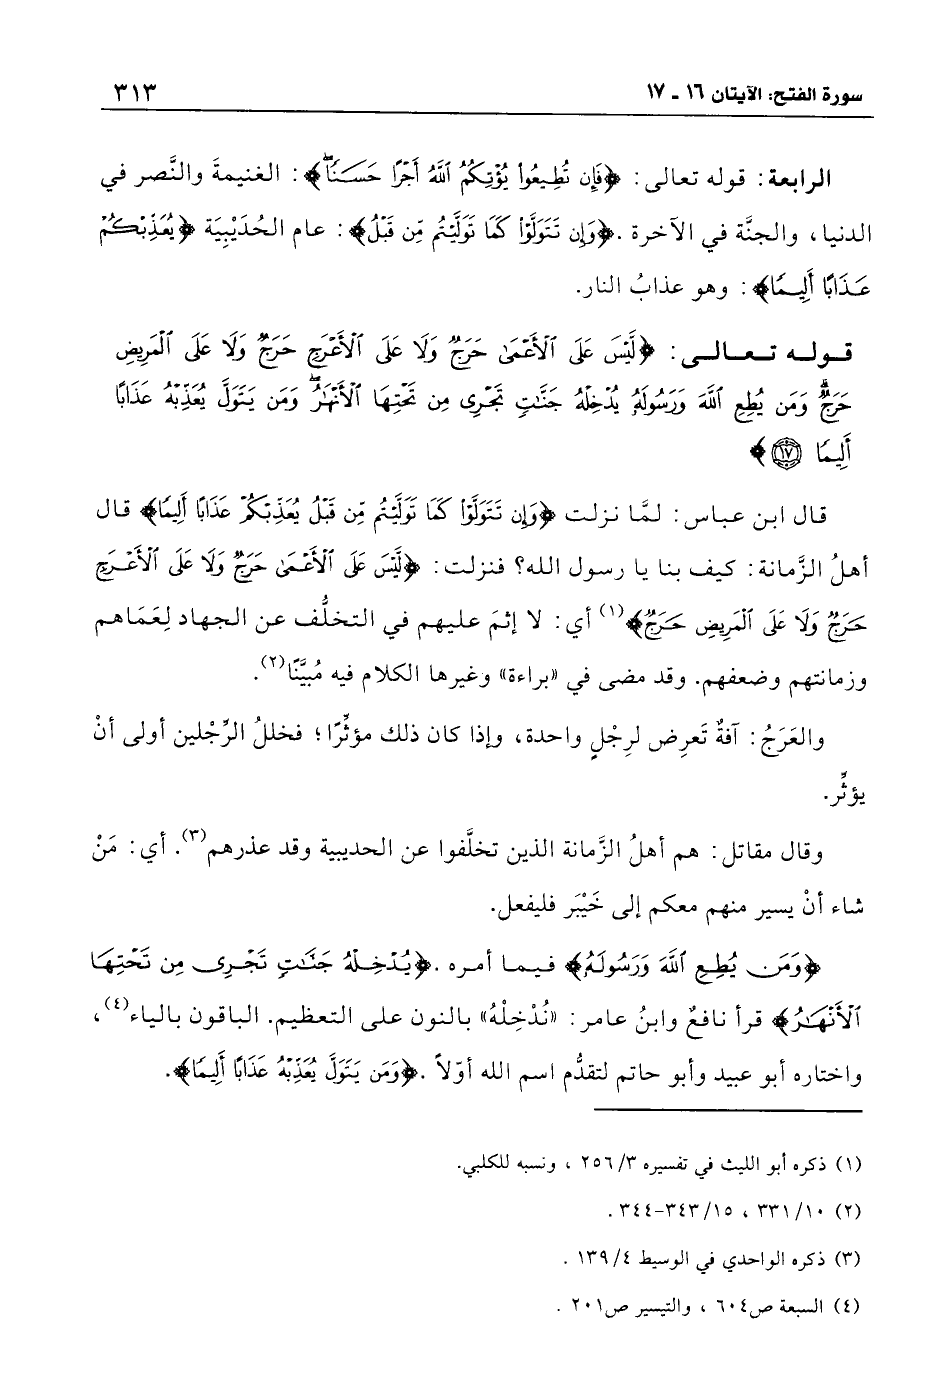 سورة الفتح: الآيتان ١٦ ـ ١٧
٣١٣
الرابعة: قوله تعالى: ﴿فَإِن تُطِيعُواْ يُؤْتِكُمُ ٱللَّهُ أَجْرًا حَسَنٗاۖ﴾: الغنيمةَ والنَّصر في
الدنيا، والجنَّة في الآخرة. ﴿وَإِن تَتَوَلَّوْاْ كَمَا تَوَلَّيْتُم مِّن قَبْلُ﴾: عام الحُدَيْبِيَة ﴿يُعَذِّبْكُمْ
عَذَابًا أَلِيمًا﴾: وهو عذابُ النار.
قوله تعالى: ﴿لَّيْسَ عَلَى ٱلْأَعْمَىٰ حَرَجٌ وَلَا عَلَى ٱلْأَعْرَجِ حَرَجٌ وَلَا عَلَى ٱلْمَرِيضِ
حَرَجٌۗ وَمَن يُطِعِ ٱللَّهَ وَرَسُولَهُۥ يُدْخِلْهُ جَنَّٰتٍ تَجْرِى مِن تَحْتِهَا ٱلْأَنْهَٰرُۖ وَمَن يَتَوَلَّ يُعَذِّبْهُ عَذَابًا
أَلِيمًا ١٧﴾
قال ابن عباس: لمَّا نزلت ﴿وَإِن تَتَوَلَّوْاْ كَمَا تَوَلَّيْتُم مِّن قَبْلُ يُعَذِّبْكُمْ عَذَابًا أَلِيمًا﴾ قال
أهلُ الزَّمانة: كيف بنا يا رسول الله؟ فنزلت: ﴿لَّيْسَ عَلَى ٱلْأَعْمَىٰ حَرَجٌ وَلَا عَلَى ٱلْأَعْرَجِ
حَرَجٌ وَلَا عَلَى ٱلْمَرِيضِ حَرَجٌ﴾(١) أي: لا إثمَ عليهم في التخلُّف عن الجهاد لِعَمَاهم
وزمانتهم وضعفهم. وقد مضى في «براءة» وغيرها الكلام فيه مُبيَّنًا(٢).
والعَرَجُ: آفةٌ تَعرِض لرِجْلٍ واحدة، وإذا كان ذلك مؤثِّرًا؛ فخللُ الرِّجْلين أولى أنْ
يؤثِّر.
وقال مقاتل: هم أهلُ الزَّمانة الذين تخلَّفوا عن الحديبية وقد عذرهم(٣). أي: مَنْ
شاء أنْ يسير منهم معكم إلى خَيْبَر فليفعل.
﴿وَمَن يُطِعِ ٱللَّهَ وَرَسُولَهُۥ﴾ فيما أمره. ﴿يُدْخِلْهُ جَنَّٰتٍ تَجْرِى مِن تَحْتِهَا
ٱلْأَنْهَٰرُ﴾ قرأ نافعٌ وابنُ عامر: «نُدْخِلْهُ» بالنون على التعظيم. الباقون بالياء(٤)،
واختاره أبو عبيد وأبو حاتم لتقدُّم اسم الله أوّلاً. ﴿وَمَن يَتَوَلَّ يُعَذِّبْهُ عَذَابًا أَلِيمًا﴾.
(١) ذكره أبو الليث في تفسيره ٢٥٦/٣ ، ونسبه للكلبي.
(٢) ٣٣١/١٠ ، ٣٤٣/١٥-٣٤٤ .
(٣) ذكره الواحدي في الوسيط ١٣٩/٤ .
(٤) السبعة ص٦٠٤ ، والتيسير ص٢٠١ .